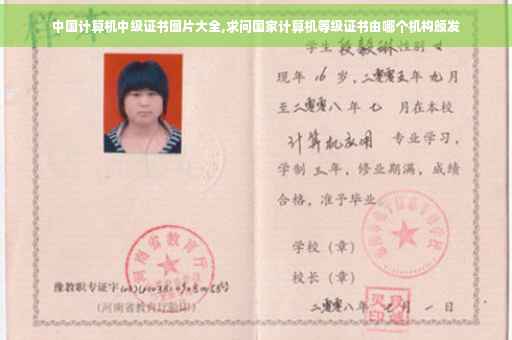 中国计算机中级证书图片大全,求问国家计算机等级证书由哪个机构颁发
样本
学生段毅琳性别女
现年16岁,二零零五年九月
至二零零八年七 月在本校
计算机应用 专业学习,
学制三年,修业期满,成绩
合格,准予毕业
学校(章)
校长(章)
二零零八年七月一日
河南省教育厅
豫教职专证字
(河南省教育厅验印)